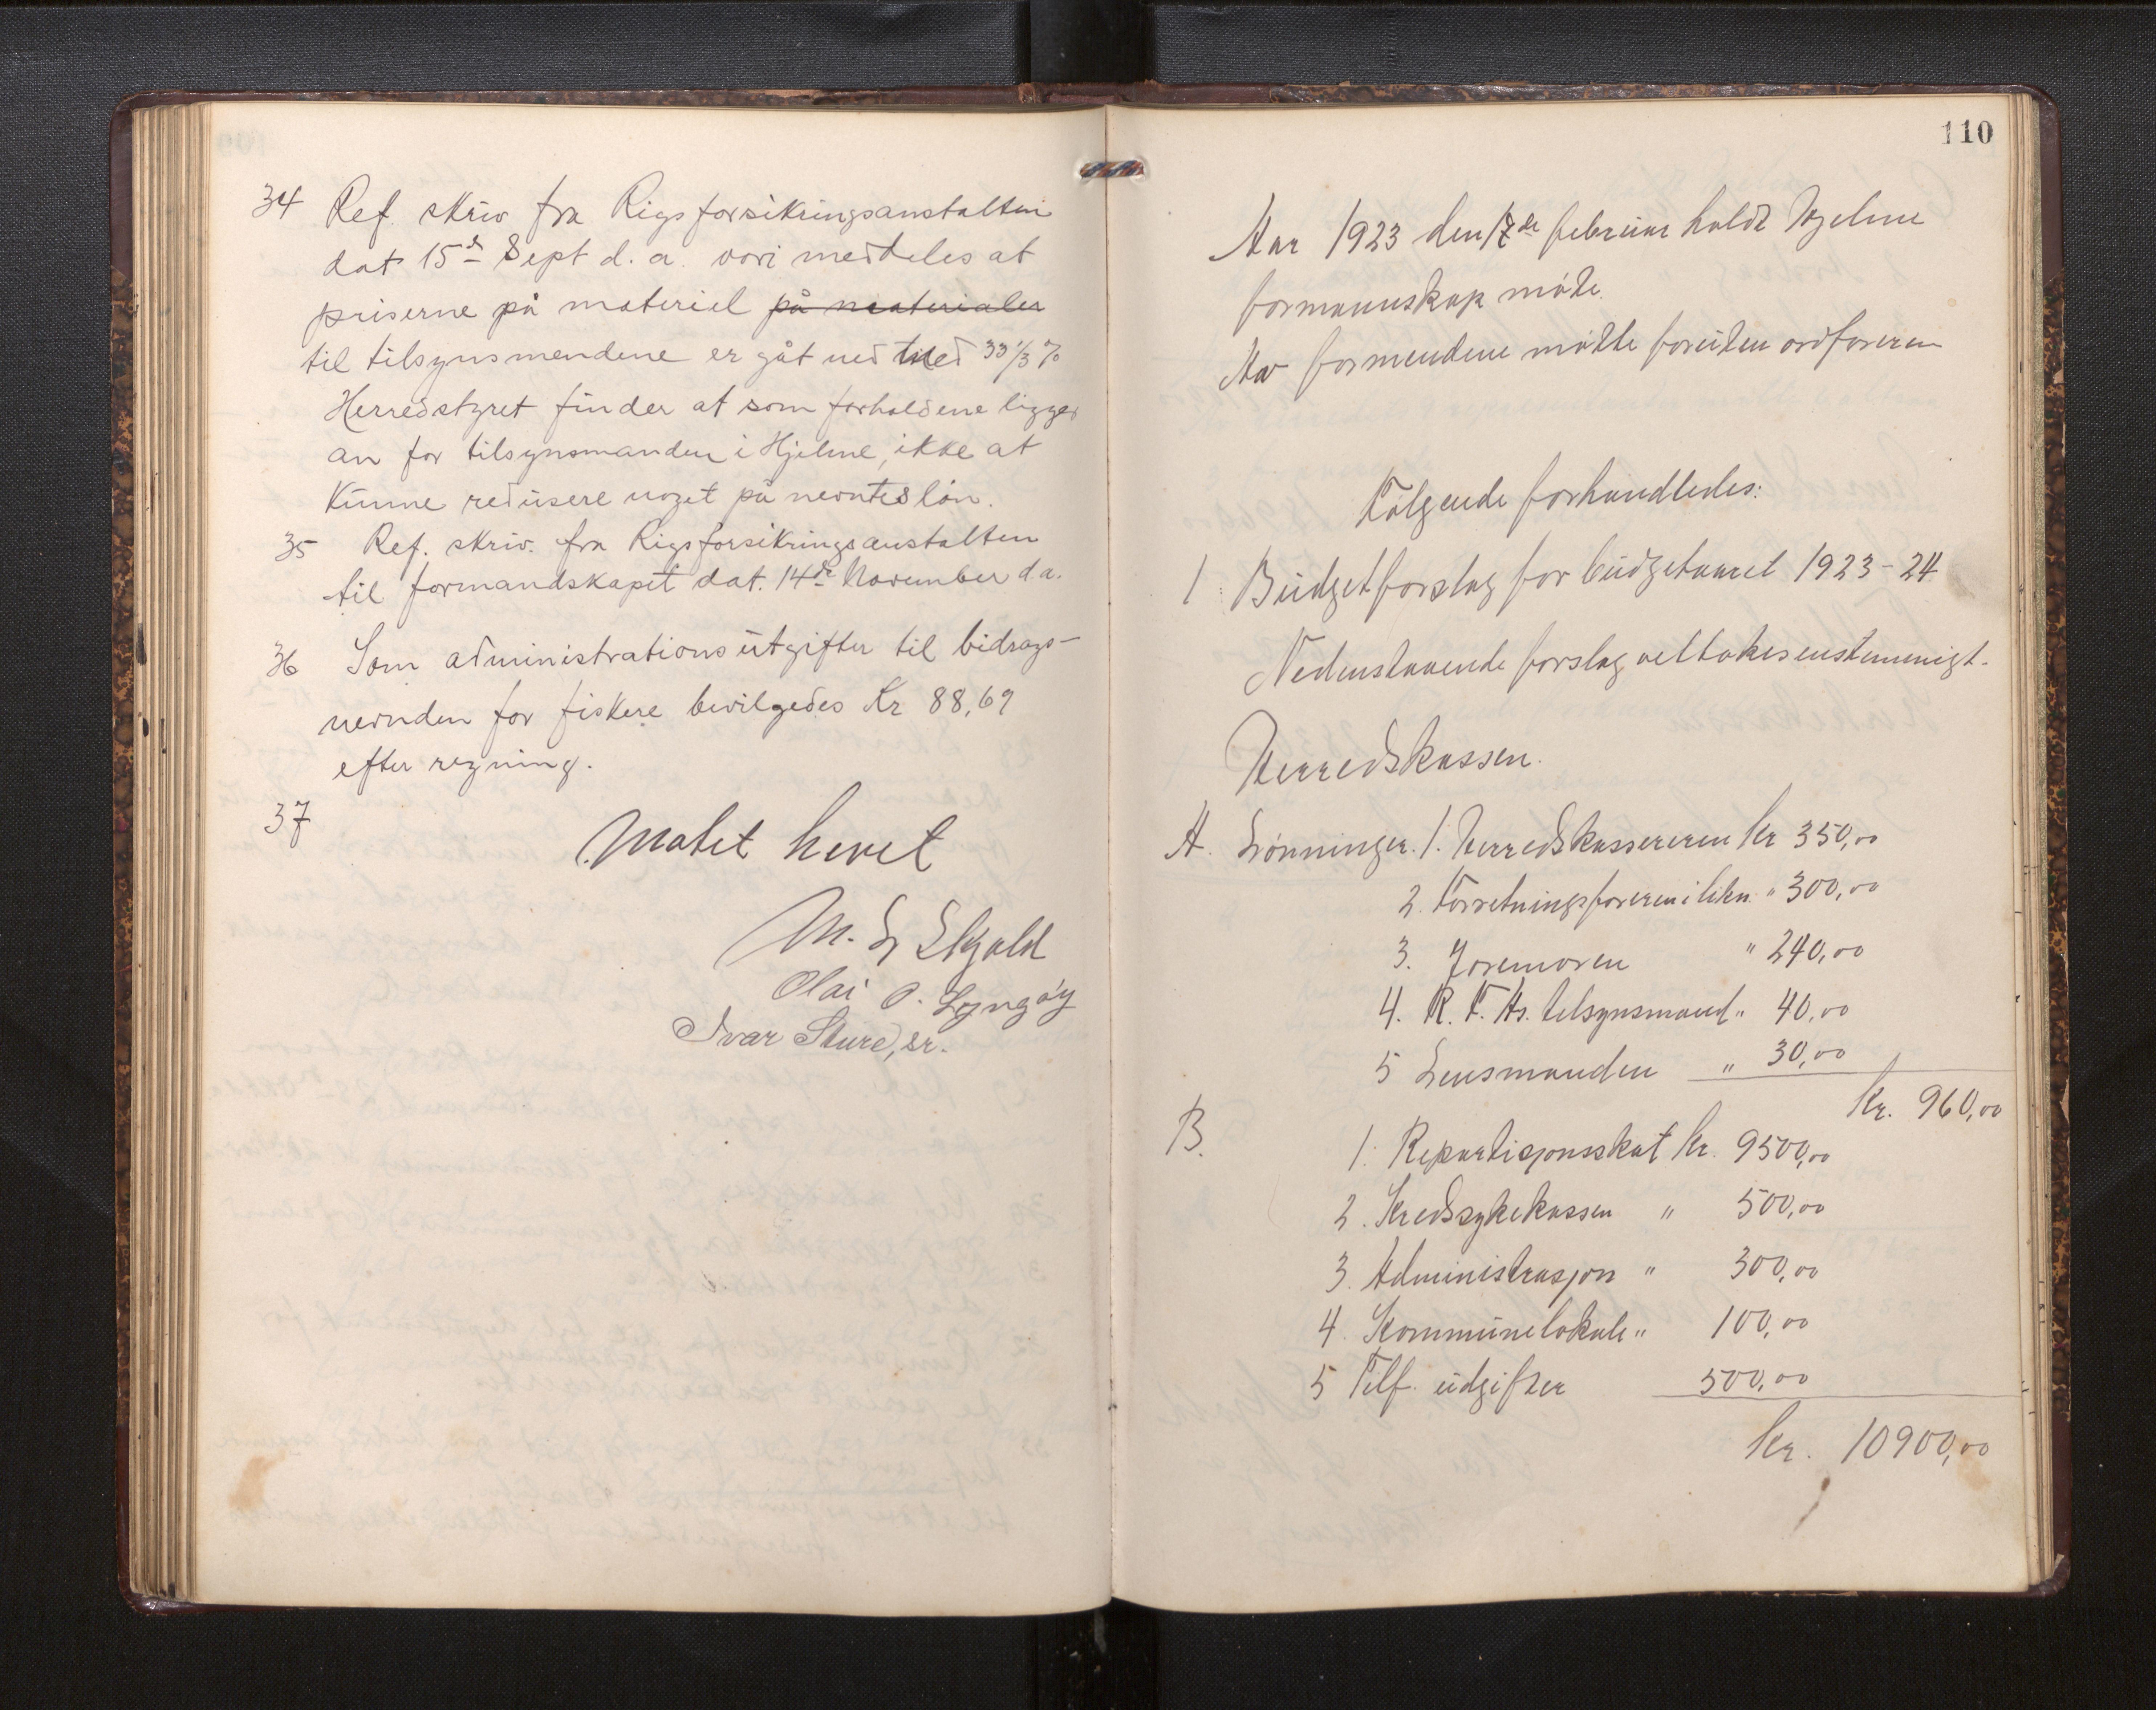 34 Ref. skriv fra Rigsforsikringsanstalten
dat 15de Sept d. a. vori meddeles at
priserne på materiel på materialer
til tilsynsmendene er gåt ned med 33 1/3 %
Herredstyret finder at som forholdene ligger
an for tilsynsmanden i Hjelme, ikke at
kunne redusere noget på nevntes løn.
35 Ref. skriv. fra Rigsforsikringsanstalten
til formandskapet dat. 14de November d a.
36 Som administrationsutgifter til bidrags-
nevnden for fiskere bevilgedes Kr 88,69
efter regning.
37
Møtet hevet
M. L Skjold
Olai O. Lyngøy
Ivar Sture, sr.
110
Aar 1923 den 17de februar holdt Hjelme
formannskap møte.
Av formendene møtte foruten ordføreren
Følgende forhandledes:
1. Budgetforslag for budgetaaret 1923-24
Nedenstaaende forslag vettokes enstemmigt.
Herredskassen.
A. Lønninger. 1. Herredskassereren kr 350,00
2. Forretningsføreren i likn. " 300,00
3. Joremoren " 240,00
4. R. F. As. tilsynsmand " 40,00
5 Lensmanden " 30,00
Kr. 960,00
B. 1. Repartisjonsskat kr. 9500,00
2. Kredssykekassen " 500,00
3. Administrasjon " 300,00
4. Kommunelokale " 100,00
5 Telf. udgifter 500,00
Kr. 10900,00